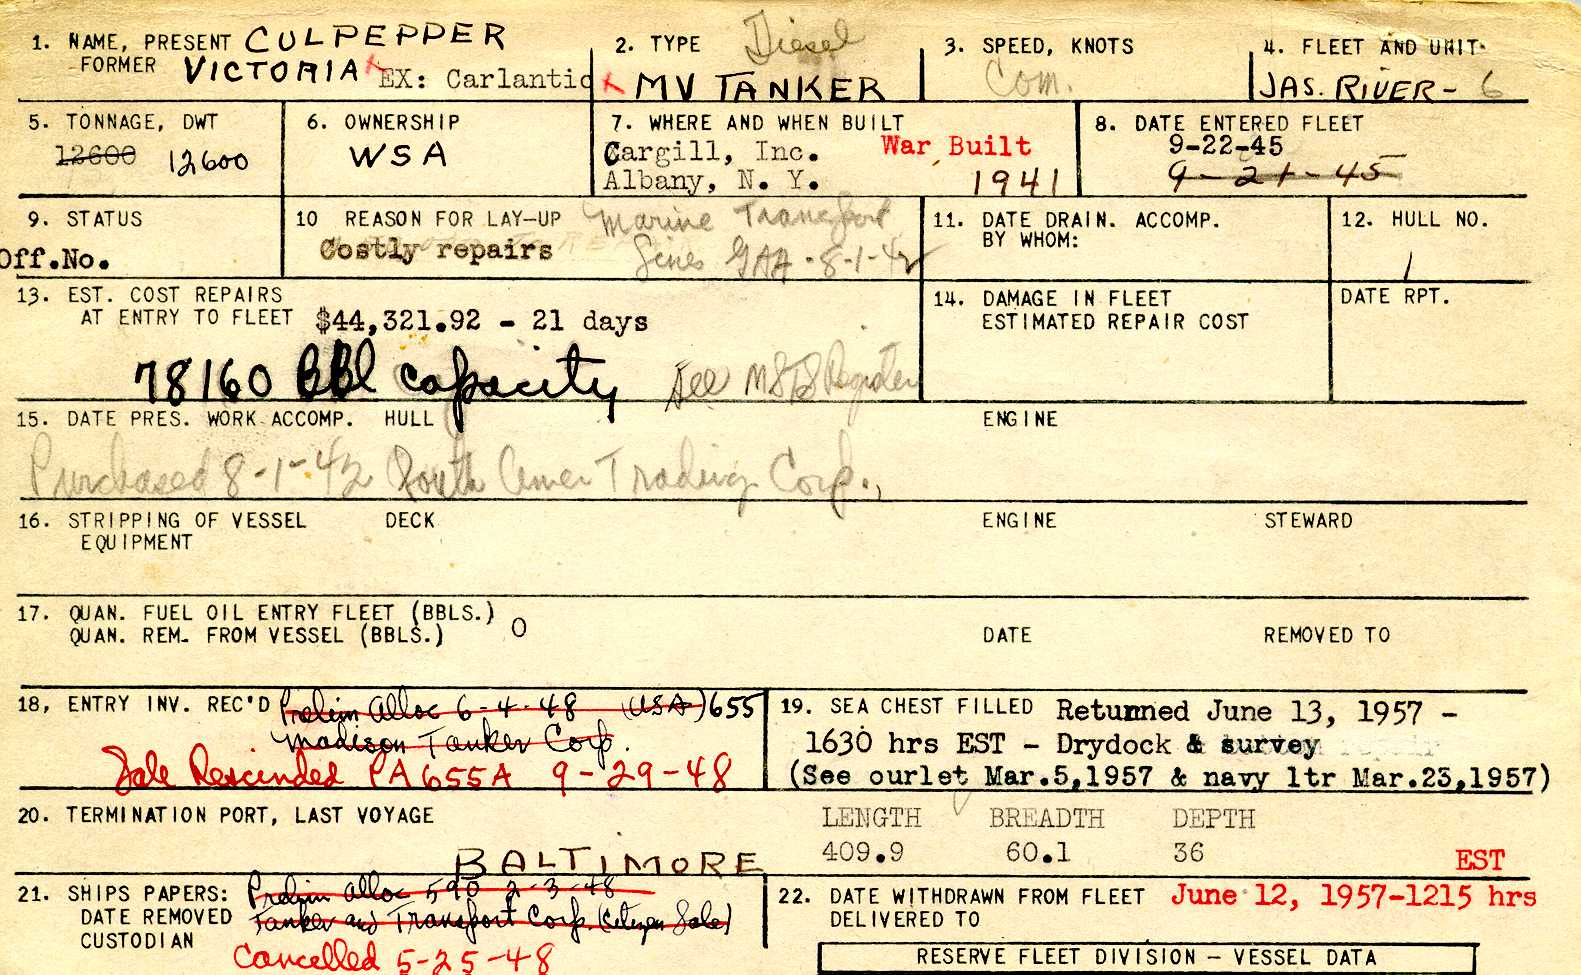 1. NAME, PRESENT CULPEPPER
FORMER VICTORIA EX: Carlantic
2. TYPE Diesel
MV TANKER
3. SPEED, KNOTS
Com.
4. FLEET AND UNIT
JAS. RIVER- 6
5. TONNAGE, DWT
12600 12600
6. OWNERSHIP
WSA
7. WHERE AND WHEN BUILT
Cargill, Inc. War Built
Albany, N. Y. 1941
8. DATE ENTERED FLEET
9-22-45
9-21-45
9. STATUS
Off.No.
10 REASON FOR LAY-UP Marine Transport
Costly repairs Lines GAA-8-1-42
11. DATE DRAIN. ACCOMP.
BY WHOM:
12. HULL NO.
1
13. EST. COST REPAIRS
AT ENTRY TO FLEET $44,321.92 - 21 days
78160 BBl capacity See MSTS Register
14. DAMAGE IN FLEET
ESTIMATED REPAIR COST
DATE RPT.
15. DATE PRES. WORK ACCOMP. HULL ENGINE
Purchased 8-1-42 South Amer Trading Corp.,
16. STRIPPING OF VESSEL DECK ENGINE STEWARD
EQUIPMENT
17. QUAN. FUEL OIL ENTRY FLEET (BBLS.)
QUAN. REM. FROM VESSEL (BBLS.) 0 DATE REMOVED TO
18, ENTRY INV. REC'D Prelim Alloc 6-4-48 (USA) 655
Madison Tanker Corp.
Sale Rescinded PA655A 9-29-48
19. SEA CHEST FILLED Returnned June 13, 1957 -
1630 hrs EST - Drydock & survey
(See ourlet Mar.5,1957 & navy ltr Mar.23,1957)
20. TERMINATION PORT, LAST VOYAGE
BALTIMORE
LENGTH BREADTH DEPTH
409.9 60.1 36
EST
21. SHIPS PAPERS: Prelim Alloc 590 2-3-48
DATE REMOVED Tanker and Transport Corp. (Citizen Sale)
CUSTODIAN
Cancelled 5-25-48
22. DATE WITHDRAWN FROM FLEET June 12, 1957-1215 hrs
DELIVERED TO
RESERVE FLEET DIVISION - VESSEL DATA